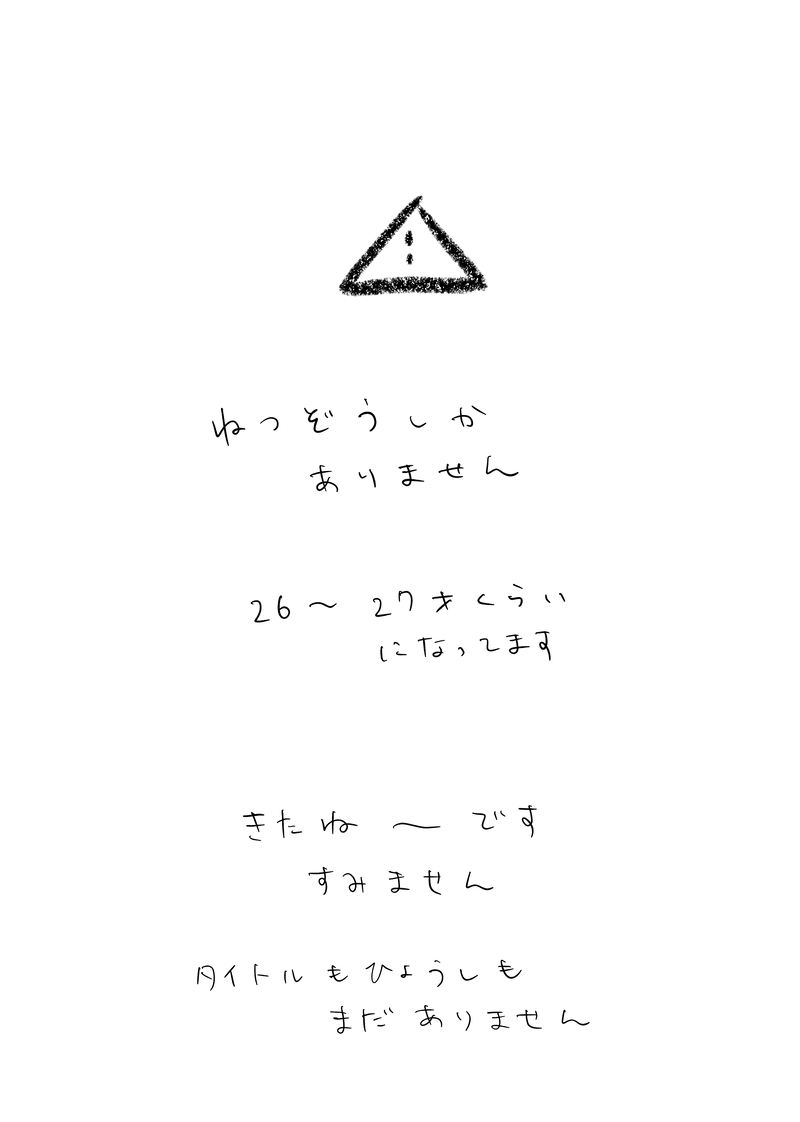 ねつぞうしか
ありません
26～27才くらい
になってます
きたね～です
すみません
タイトルもひょうしも
まだありません